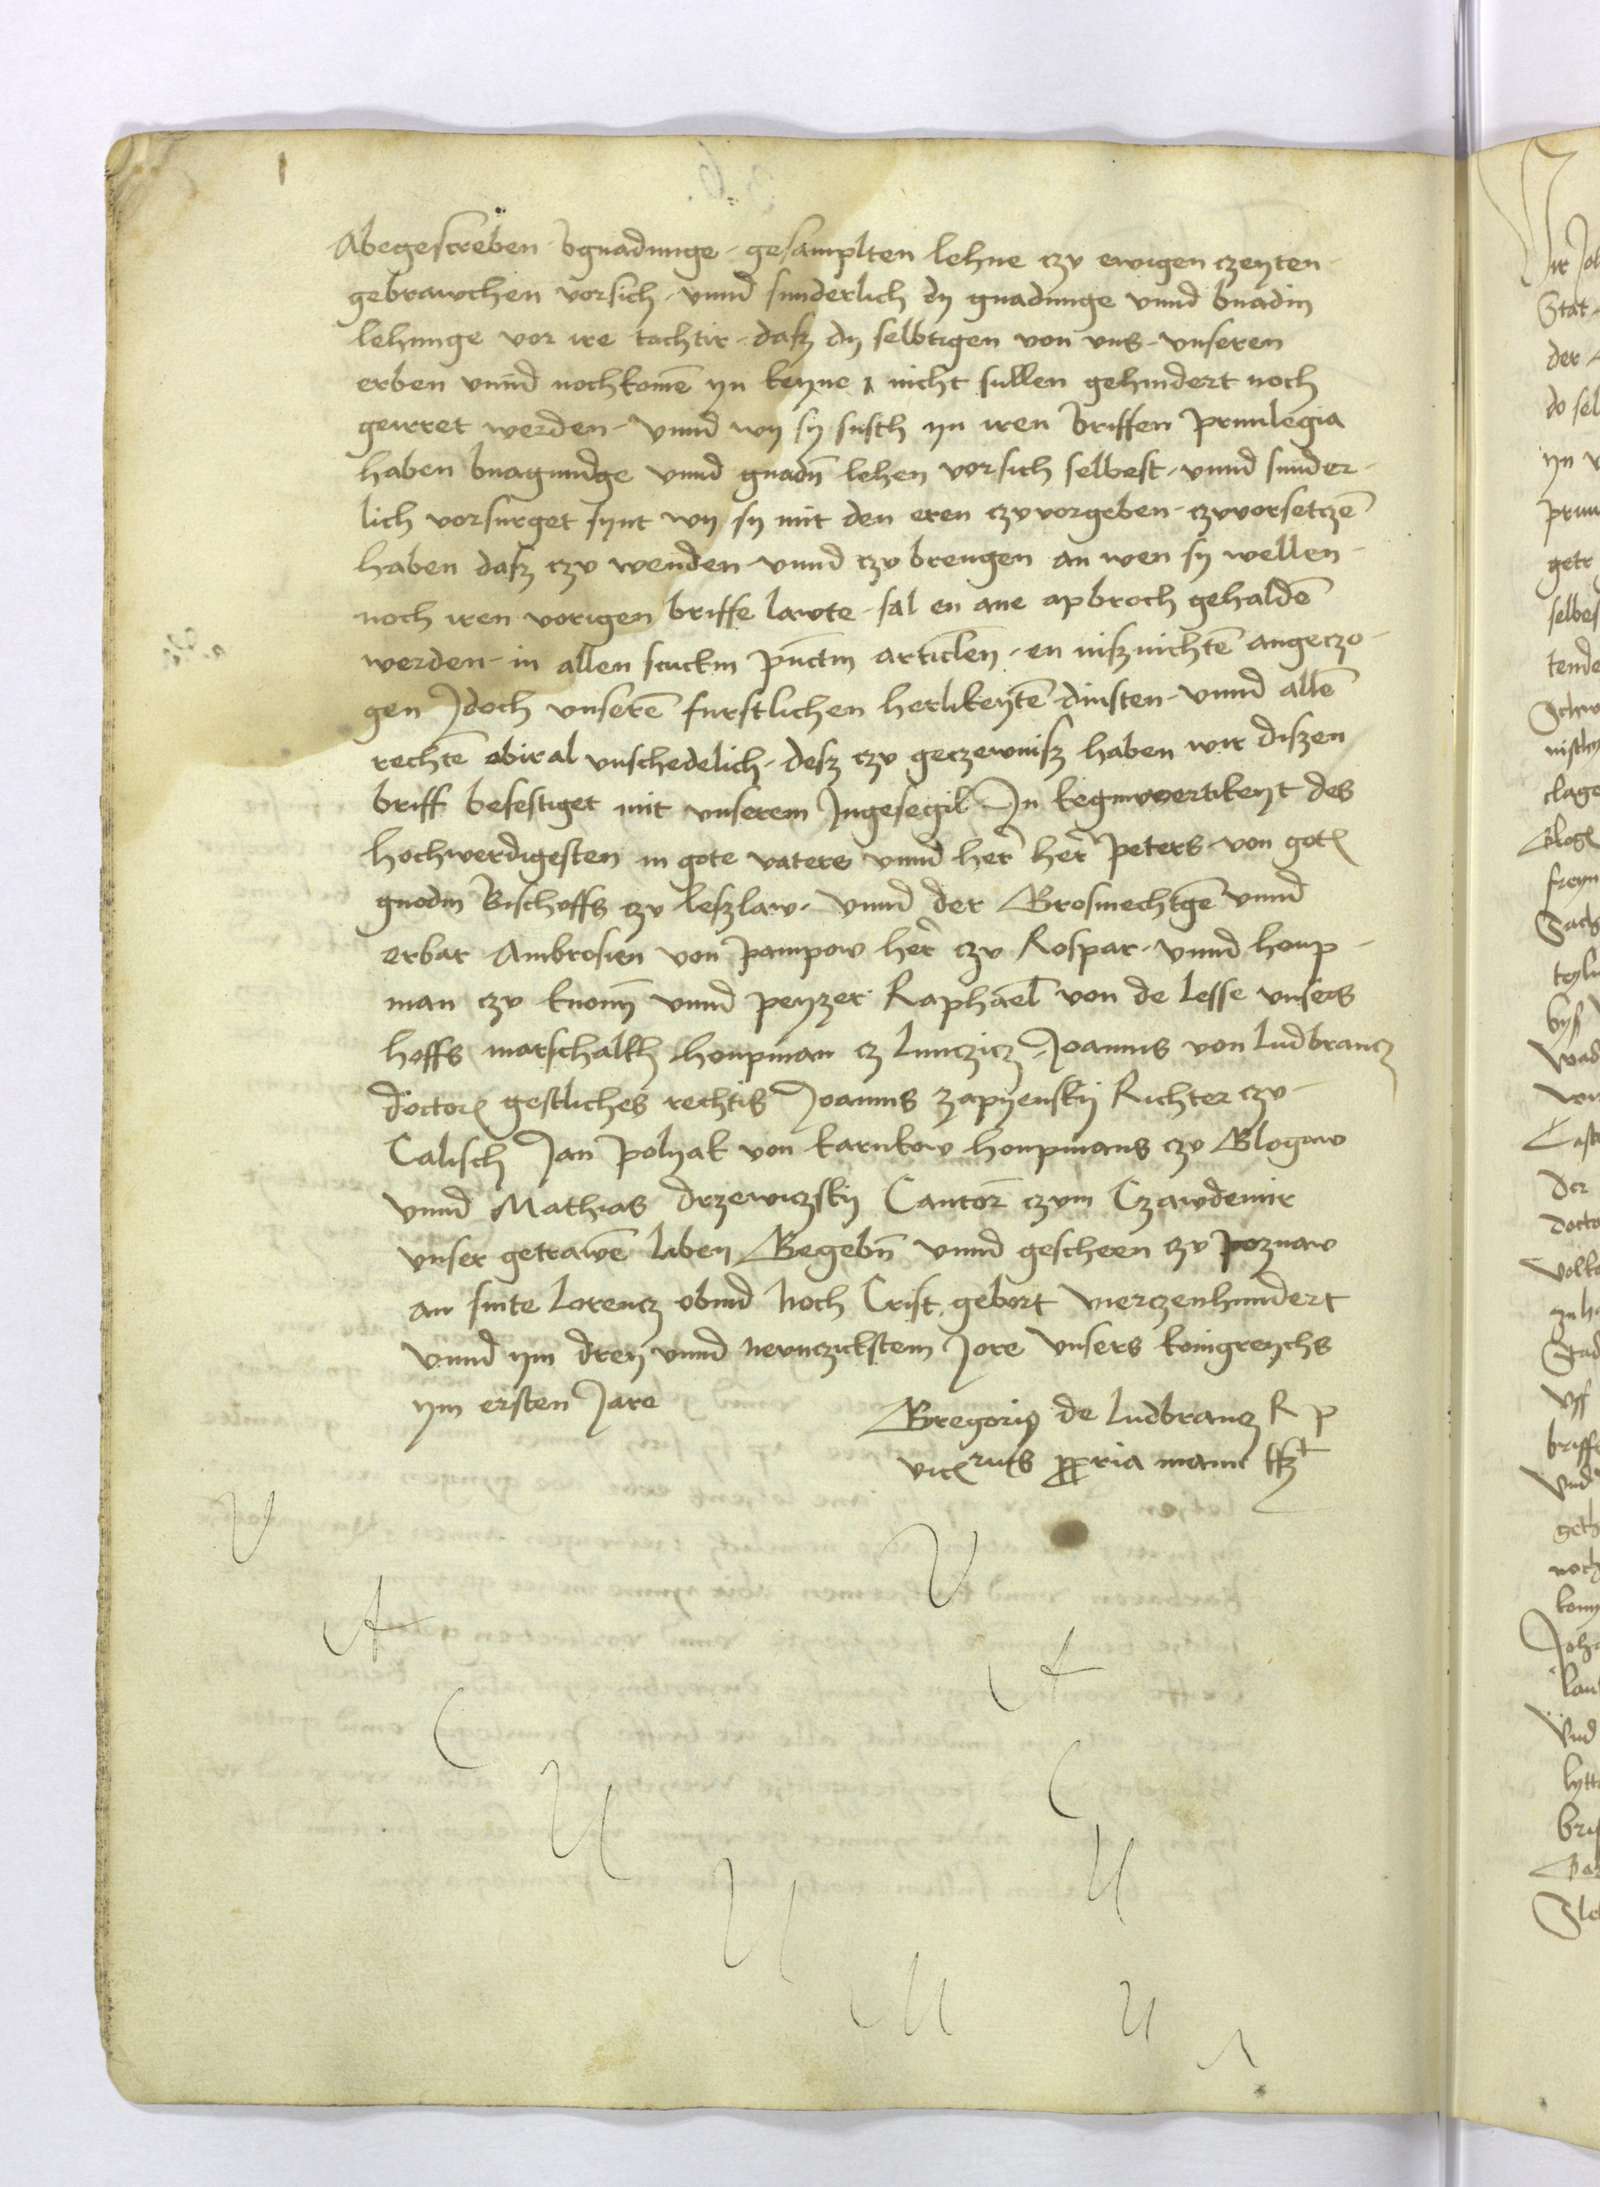 Abegescreben bgnadunge gesamplten lehne czv ewigen czeyten
gebrawchen vorsich vnnd sunderlich dy gnadunge vnnd bnadin
lehnnge vor ire tochtir dasz dy selbtigen von vns vnseren
erben vnnd nochkomē yn keyne nicht sullen gehindert noch
geirret werden vnnd wy sy susth yn iren briffen priuilegia
haben bnagnndge vnnd gnadn̄ lehen vorsich selbest vnnd sunder
lich vorsurget synt wy sy mit den eren czvvorgeben czvvorsetczē
haben dasz czv wenden vnnd czv brengen an wen sy wellen
noch iren vorigen briffe lawte sal en ane apbroch gehaldē
werden in allen stuckin pūctin articlen en nisznichtē angeczo
gen Jdoch vnserē furstlichen herlikeytē dinsten vnnd allē
rechtē obiral vnschedelich desz czv geczewnisz haben wir diszen
briff befestiget mit vnserem Jngesegil Jn keginwertikeyt des
hochwerdigesten in gote vaters vnnd her̄ her̄ peters von gotꝭ
gnodin Bischoffs czv leszlaw vnnd der Grosmechtgē vnnd
erbar Ambrosien von pampow her̄ czv Rospar vnnd houp
man czv knomi vnnd peyzer Raphael von de lesse vnsers
hoffs marschalkh houpman cz lunczicz Joannis von ludbrancz
doctorꝭ gestliches rechtis Joannis zapyensky Richter czv
Calisch Jan polyak von karnkow houpmans czv Glogaw
vnnd Mathias drzewiczsky Cantor czvm Czawdemir
vnser getrawē liben Gegebn̄ vnnd gescheen czv poznaw
an sinte lorencz obind noch Crist gebort vierczenhundert
vnnd ym drey vnnd nevnczickstem Jore vnsers konigreychs
ym ersten Jare
Gregoriꝰ de ludbrancz R p
vicꝭ ꝓpria manu sszt
V
A
C
U
U
U
V
A
C
U
U